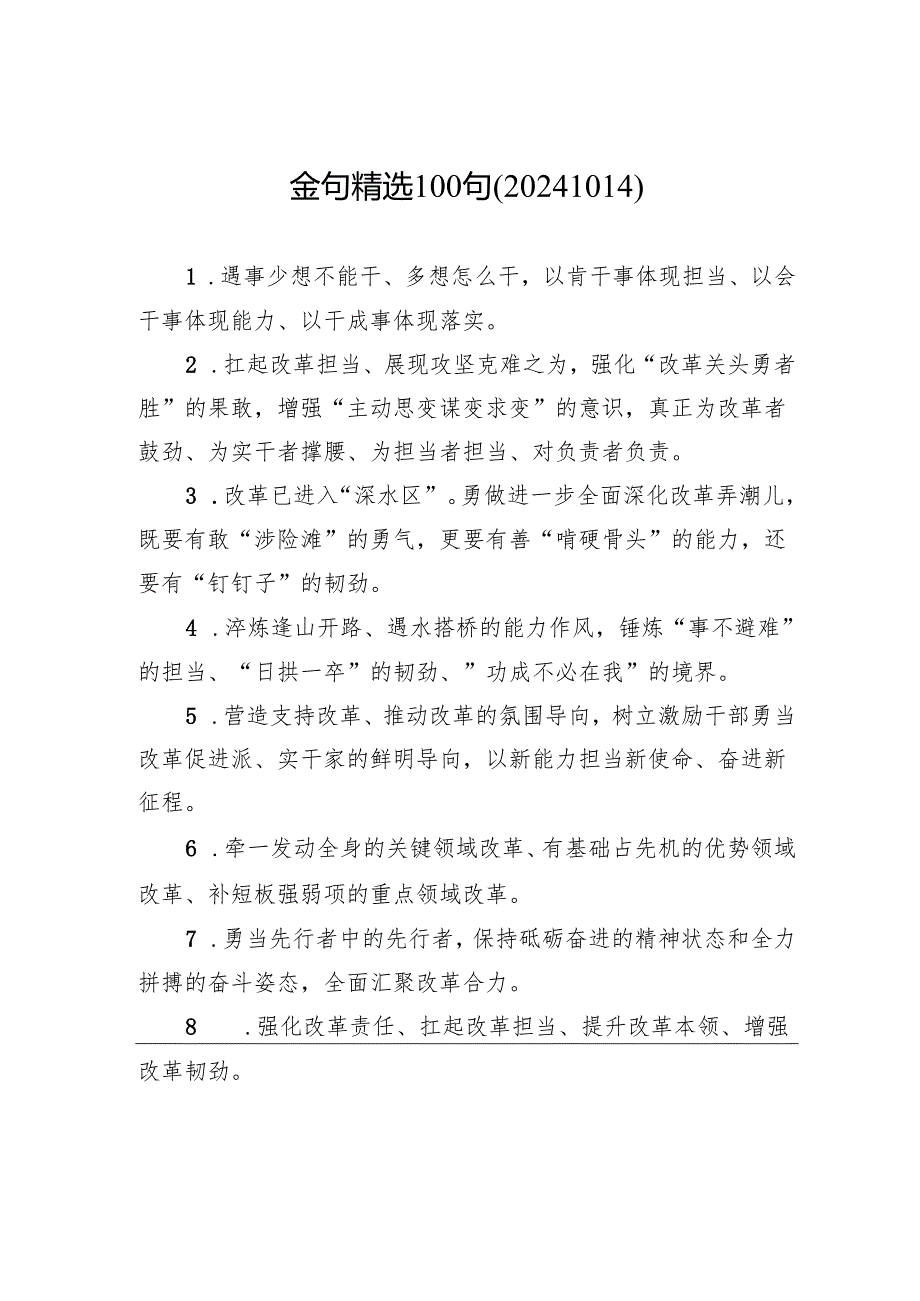 金句精选100句(20241014)
1 .遇事少想不能干、多想怎么干，以肯干事体现担当、以会
干事体现能力、以干成事体现落实。
2 .扛起改革担当、展现攻坚克难之为，强化“改革关头勇者
胜”的果敢，增强“主动思变谋变求变”的意识，真正为改革者
鼓劲、为实干者撑腰、为担当者担当、对负责者负责。
3 .改革已进入“深水区”。勇做进一步全面深化改革弄潮儿，
既要有敢“涉险滩”的勇气，更要有善“啃硬骨头”的能力，还
要有“钉钉子”的韧劲。
4 .淬炼逢山开路、遇水搭桥的能力作风，锤炼“事不避难”
的担当、“日拱一卒”的韧劲、”功成不必在我”的境界。
5 .营造支持改革、推动改革的氛围导向，树立激励干部勇当
改革促进派、实干家的鲜明导向，以新能力担当新使命、奋进新
征程。
6 .牵一发动全身的关键领域改革、有基础占先机的优势领域
改革、补短板强弱项的重点领域改革。
7 .勇当先行者中的先行者，保持砥砺奋进的精神状态和全力
拼搏的奋斗姿态，全面汇聚改革合力。
8 .强化改革责任、扛起改革担当、提升改革本领、增强
改革韧劲。